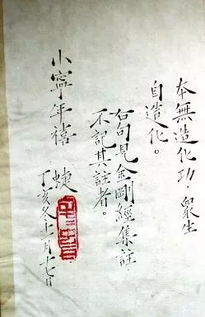 本無造化功。眾生
自造化。
右句見金剛經集註
不記其註者。
小寧年禧
丁亥冬七月十七日